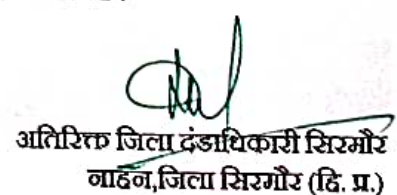 अतिरिक्त जिला दंडाधिकारी सिरमौर
नाहन,जिला सिरमौर (हि. प्र.)